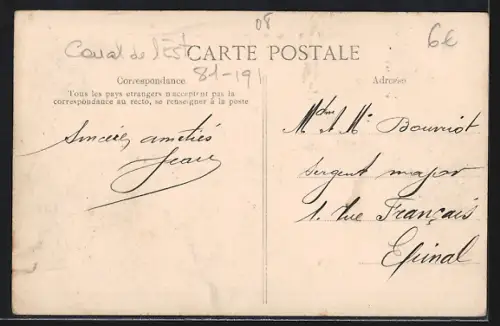 08
6€
Canal de l'Est
CARTE POSTALE
81-191
Correspondance
Tous les pays étrangers n'acceptent pas la
correspondance au recto, se renseigner à la poste
Adresse
Sincères amitiés
Jean
Mdm et Mr Bouvriot
sergent major
1. rue Français
Epinal